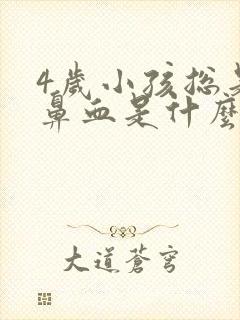 4歲小孩總是
鼻血是什麼
大道蒼穹